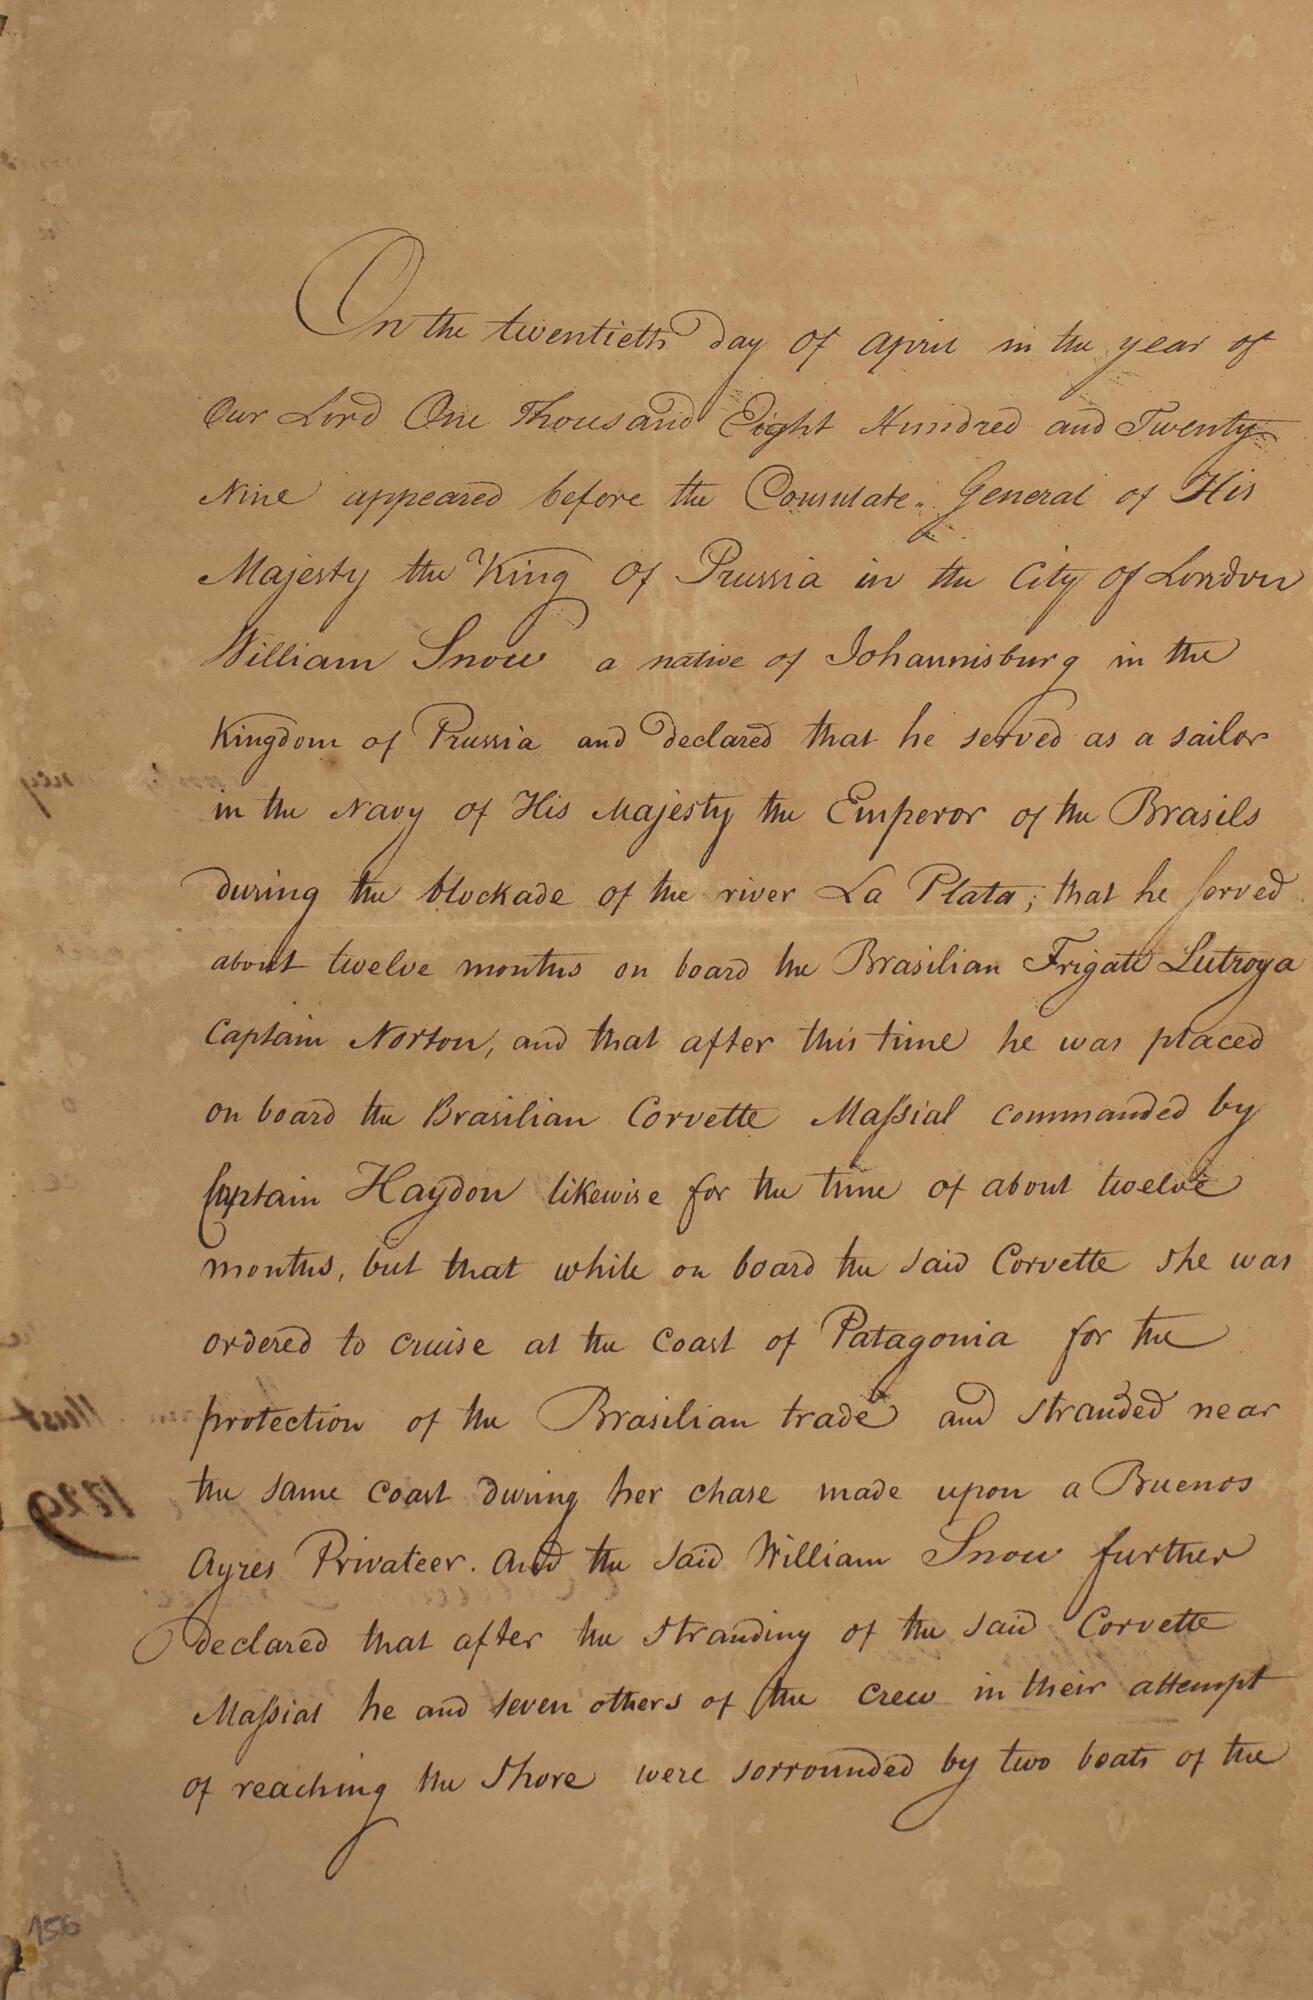 On the twentieth day of April in the year of
Our Lord One Thousand Eight Hundred and Twenty
Nine appeared before the Consulate General of His
Majesty the King of Prussia in the City of London
William Snow a native of Johannisburg in the
Kingdom of Prussia and declared that he served as a sailor
in the Navy of His Majesty the Emperor of the Brasils
during the blockade of the river La Plata; that he served
about twelve months on board the Brasilian Frigate Lutroya
Captain Norton, and that after this time he was placed
on board the Brasilian Corvette Maſsial commanded by
Captain Haydon likewise for the time of about twelve
months, but that while on board the said Corvette she was
ordered to cruise at the coast of Patagonia for the
protection of the Brasilian trade and stranded near
the same coast during her chase made upon a Buenos
Ayres Privateer. And the said William Snow further
declared that after the stranding of the said Corvette
Maſsial he and seven others of the crew in their attempt
of reaching the shore were sorrounded by two boats of the
156